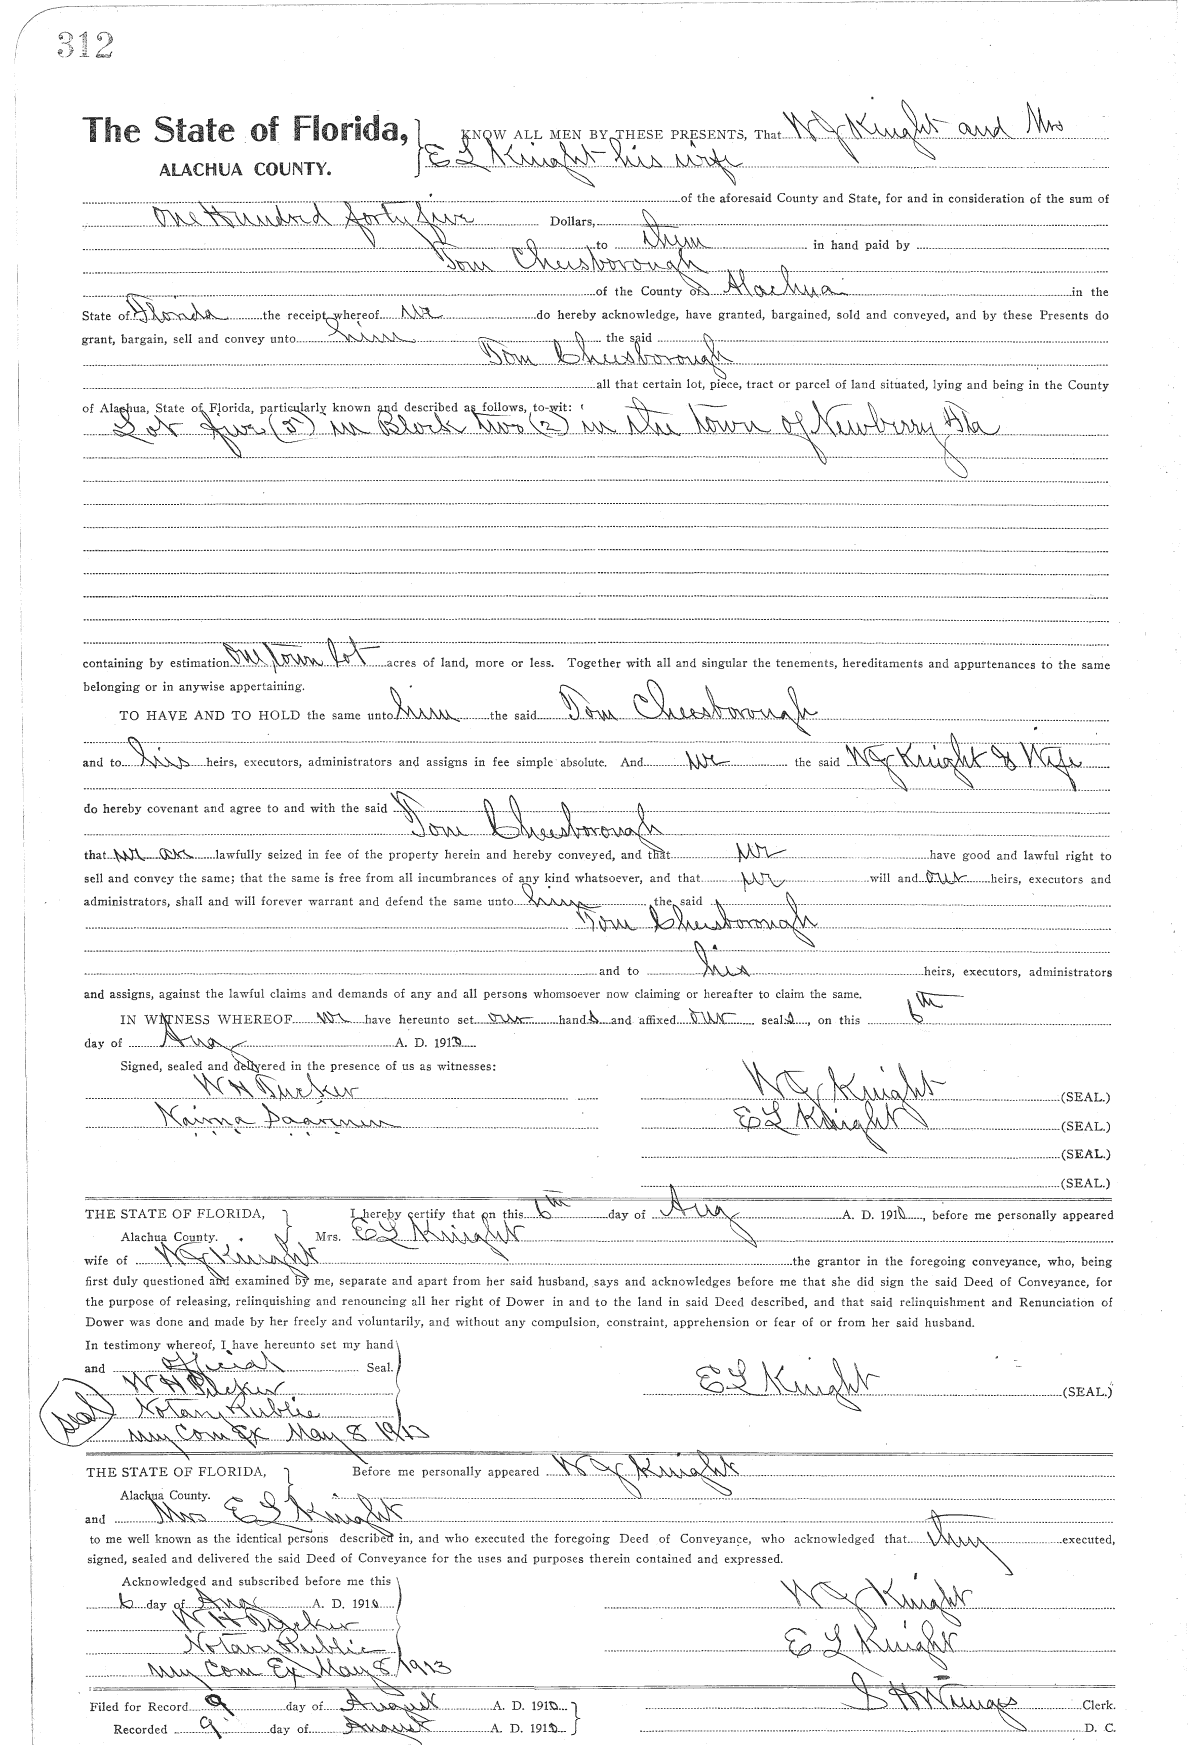 312
The State of Florida, KNOW ALL MEN BY THESE PRESENTS, That W J Knight and Mrs
ALACHUA COUNTY. E L Knight his wife
of the aforesaid County and State, for and in consideration of the sum of
One Hundred forty five Dollars,
to them in hand paid by
Tom Cheesborough
of the County of Alachua in the
State of Florida the receipt whereof we do hereby acknowledge, have granted, bargained, sold and conveyed, and by these Presents do
grant, bargain, sell and convey unto him the said
Tom Cheesborough
all that certain lot, piece, tract or parcel of land situated, lying and being in the County
of Alachua, State of Florida, particularly known and described as follows, to-wit:
Lot five (5) in Block two (2) in the town of Newberry Fla
containing by estimation One town lot acres of land, more or less. Together with all and singular the tenements, hereditaments and appurtenances to the same
belonging or in anywise appertaining.
TO HAVE AND TO HOLD the same unto him the said Tom Cheesborough
and to his heirs, executors, administrators and assigns in fee simple absolute. And we the said W J Knight & Wife
do hereby covenant and agree to and with the said
Tom Cheesborough
that we are lawfully seized in fee of the property herein and hereby conveyed, and that we have good and lawful right to
sell and convey the same; that the same is free from all incumbrances of any kind whatsoever, and that we will and our heirs, executors and
administrators, shall and will forever warrant and defend the same unto him the said
Tom Cheesborough
and to his heirs, executors, administrators
and assigns, against the lawful claims and demands of any and all persons whomsoever now claiming or hereafter to claim the same.
IN WITNESS WHEREOF we have hereunto set our hands and affixed our seals, on this 6th
day of Aug A. D. 1910
Signed, sealed and delivered in the presence of us as witnesses:
W H Tucker W J Knight (SEAL.)
Naima Saarinen E L Knight (SEAL.)
(SEAL.)
(SEAL.)
THE STATE OF FLORIDA, I hereby certify that on this 6th day of Aug A. D. 1910, before me personally appeared
Alachua County. Mrs. E L Knight
wife of W J Knight the grantor in the foregoing conveyance, who, being
first duly questioned and examined by me, separate and apart from her said husband, says and acknowledges before me that she did sign the said Deed of Conveyance, for
the purpose of releasing, relinquishing and renouncing all her right of Dower in and to the land in said Deed described, and that said relinquishment and Renunciation of
Dower was done and made by her freely and voluntarily, and without any compulsion, constraint, apprehension or fear of or from her said husband.
In testimony whereof, I have hereunto set my hand
and official Seal.
W H Tucker E L Knight (SEAL.)
seal Notary Public
My Com Ex May 8 1913
THE STATE OF FLORIDA, Before me personally appeared W J Knight
Alachua County.
and Mrs E L Knight
to me well known as the identical persons described in, and who executed the foregoing Deed of Conveyance, who acknowledged that they executed,
signed, sealed and delivered the said Deed of Conveyance for the uses and purposes therein contained and expressed.
Acknowledged and subscribed before me this
6 day of Aug A. D. 1910 W J Knight
W H Tucker
Notary Public E L Knight
My Com Ex May 8 1913
Filed for Record 9 day of August A. D. 1910 S H Wienges Clerk.
Recorded 9 day of August A. D. 1910 D. C.